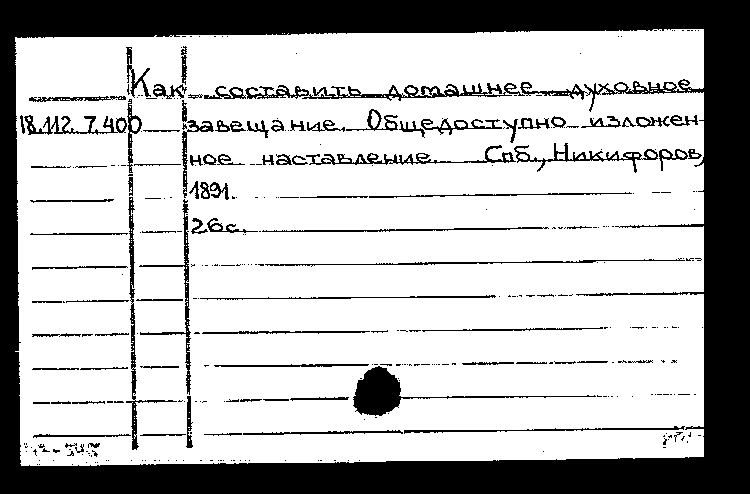 Как составить домашнее духовное
18.112.7.400 завещание. Общедоступно изложен-
ное наставление. Спб., Никифоров,
1891.
26с.